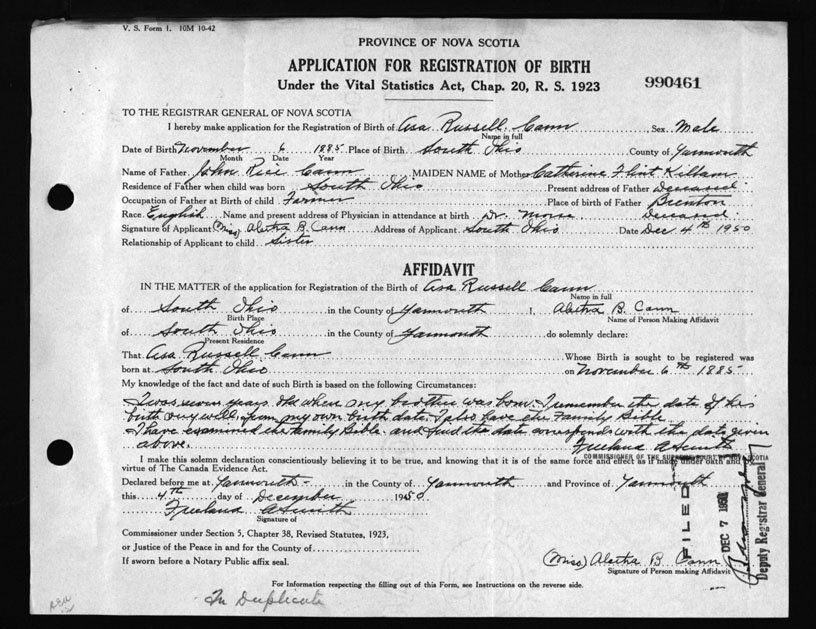 V. S. Form 1. 10M 10-42
PROVINCE OF NOVA SCOTIA
APPLICATION FOR REGISTRATION OF BIRTH
Under the Vital Statistics Act, Chap. 20, R. S. 1923
990461
TO THE REGISTRAR GENERAL OF NOVA SCOTIA
I hereby make application for the Registration of Birth of Asa Russell Cann Sex Male
Name in full
Date of Birth November 6 1885 Place of Birth South Ohio County of Yarmouth
Month Date Year
Name of Father John Rice Cann MAIDEN NAME of Mother Catherine Flint Killam
Residence of Father when child was born South Ohio Present address of Father Deceased
Occupation of Father at Birth of child Farmer Place of birth of Father Brenton
Race English Name and present address of Physician in attendance at birth Dr. Morse Deceased
Signature of Applicant (Miss) Aletha B. Cann Address of Applicant South Ohio Date Dec 4th 1950
Relationship of Applicant to child Sister
AFFIDAVIT
IN THE MATTER of the application for Registration of the Birth of Asa Russell Cann
Name in full
of South Ohio in the County of Yarmouth I, Aletha B. Cann
Birth Place Name of Person Making Affidavit
of South Ohio in the County of Yarmouth do solemnly declare:
Present Residence
That Asa Russell Cann Whose Birth is sought to be registered was
born at South Ohio on November 6th 1885
My knowledge of the fact and date of such Birth is based on the following Circumstances:
I was seven years old when my brother was born. I remember the date of his
birth very well, from my own birth date. I also have the Family Bible.
I have examined the family Bible and find the date corresponds with the date given
above. Freeland A Smith
COMMISSIONER OF THE SUPREME COURT OF NOVA SCOTIA
I make this solemn declaration conscientiously believing it to be true, and knowing that it is of the same force and effect as if made under oath and by
virtue of The Canada Evidence Act.
Declared before me at Yarmouth in the County of Yarmouth and Province of Yarmouth
this 4th day of December 1950
Freeland A Smith
Signature of
Commissioner under Section 5, Chapter 38, Revised Statutes, 1923,
or Justice of the Peace in and for the County of
If sworn before a Notary Public affix seal.
(Miss) Aletha B Cann
Signature of Person making Affidavit
FILED
DEC 7
Deputy Registrar General
For Information respecting the filling out of this Form, see Instructions on the reverse side.
In Duplicate